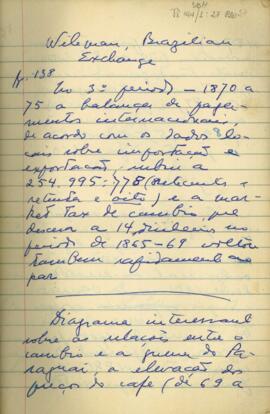 Wileman, Brazilian
Exchange
p. 138
No 3º periodo – 1870 a
75 a balança de paga-
mentos internacionais,
de acordo com os dados
sobre importação e
exportação, subiu a
254.995:778 (setecentos e
setenta e oito) e a
taxa de cambio, que
descera a 14 dinheiros no
periodo de 1865-69 voltou
tambem rapidamente ao
par
Diagrama interessante
sobre as relações entre o
cambio e a guerra do Pa-
raguai, a elevação do
preço do café (de 69 a